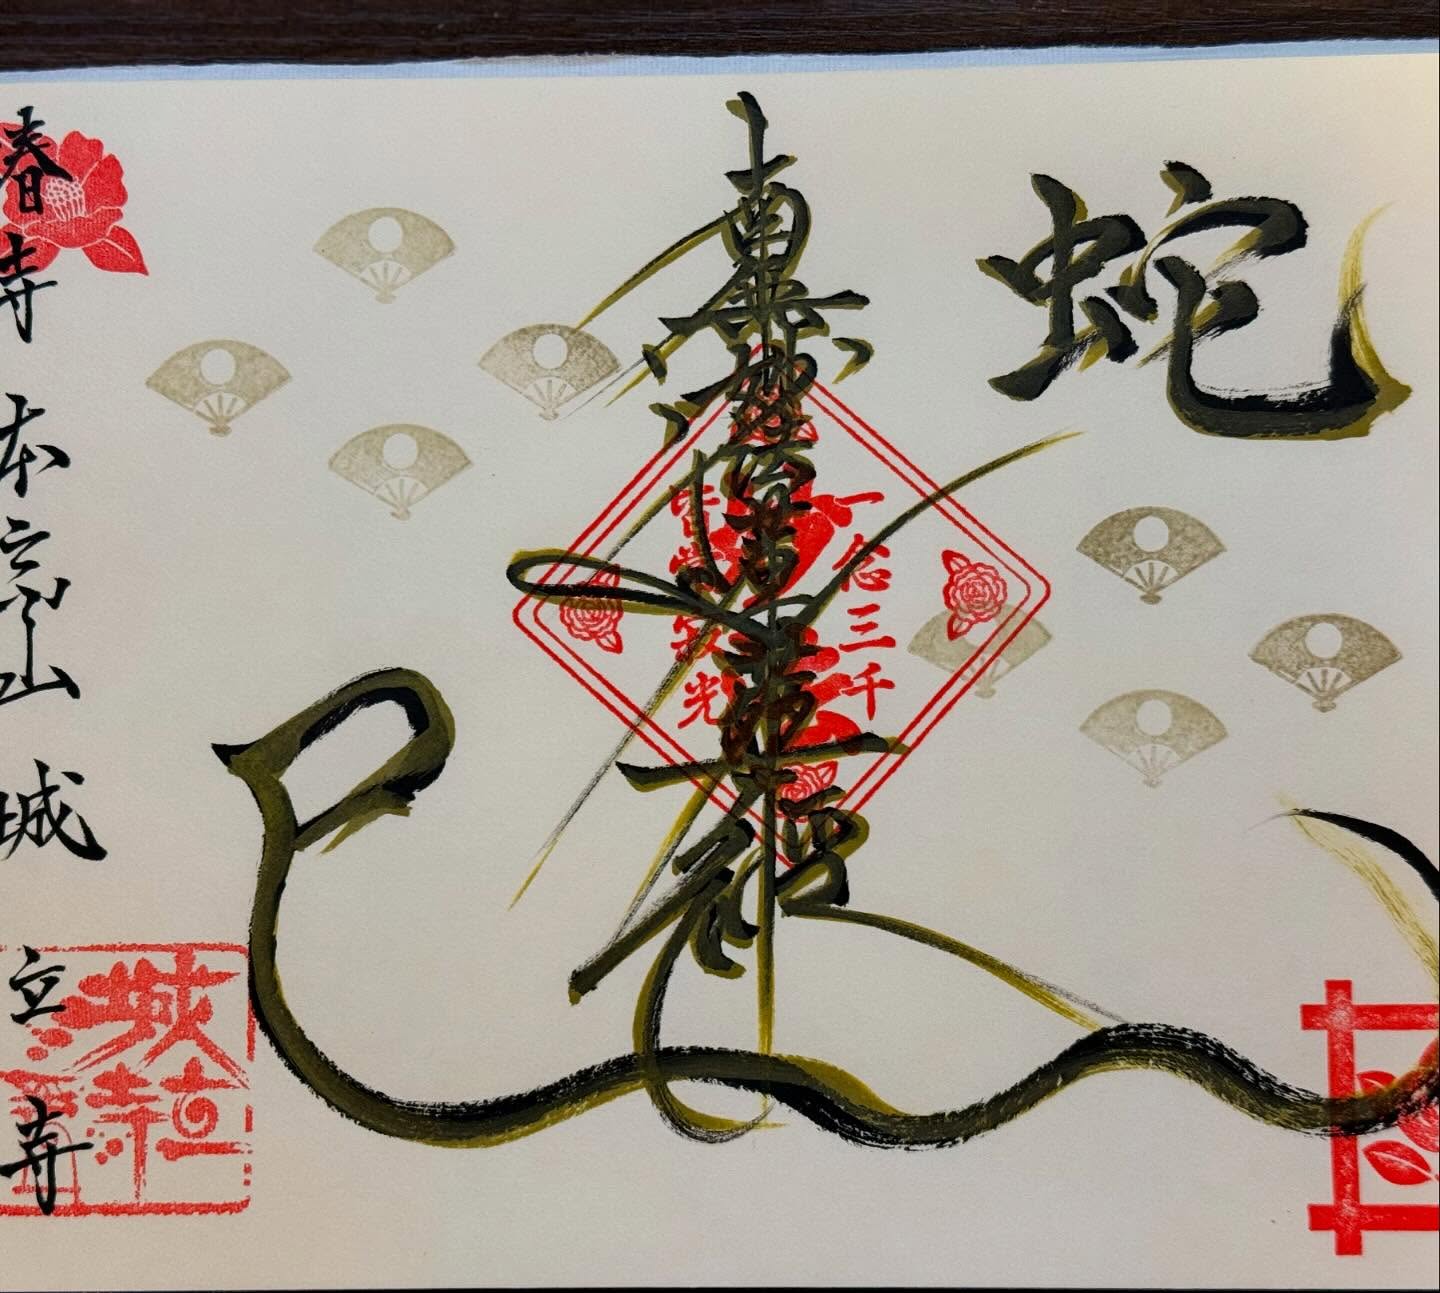 蛇
南無妙法蓮華経
一念三千
寂光
巳
春寺
本
山
城立寺
城立寺